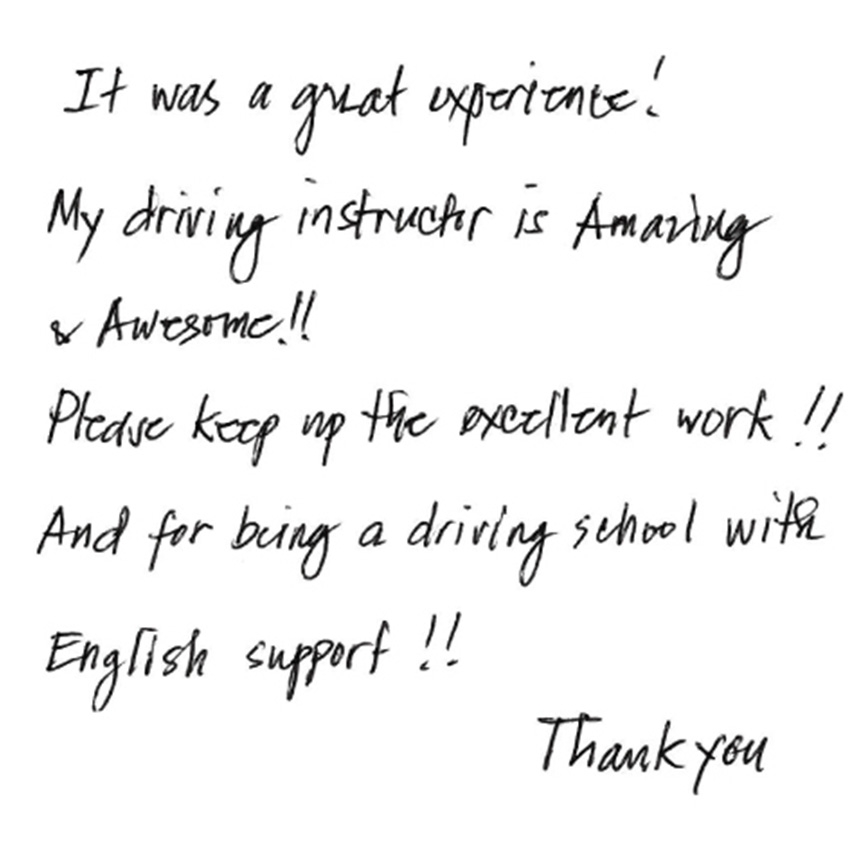 It was a great experience!
My driving instructor is Amazing
& Awesome!!
Please keep up the excellent work!!
And for being a driving school with
English support!!
Thank you